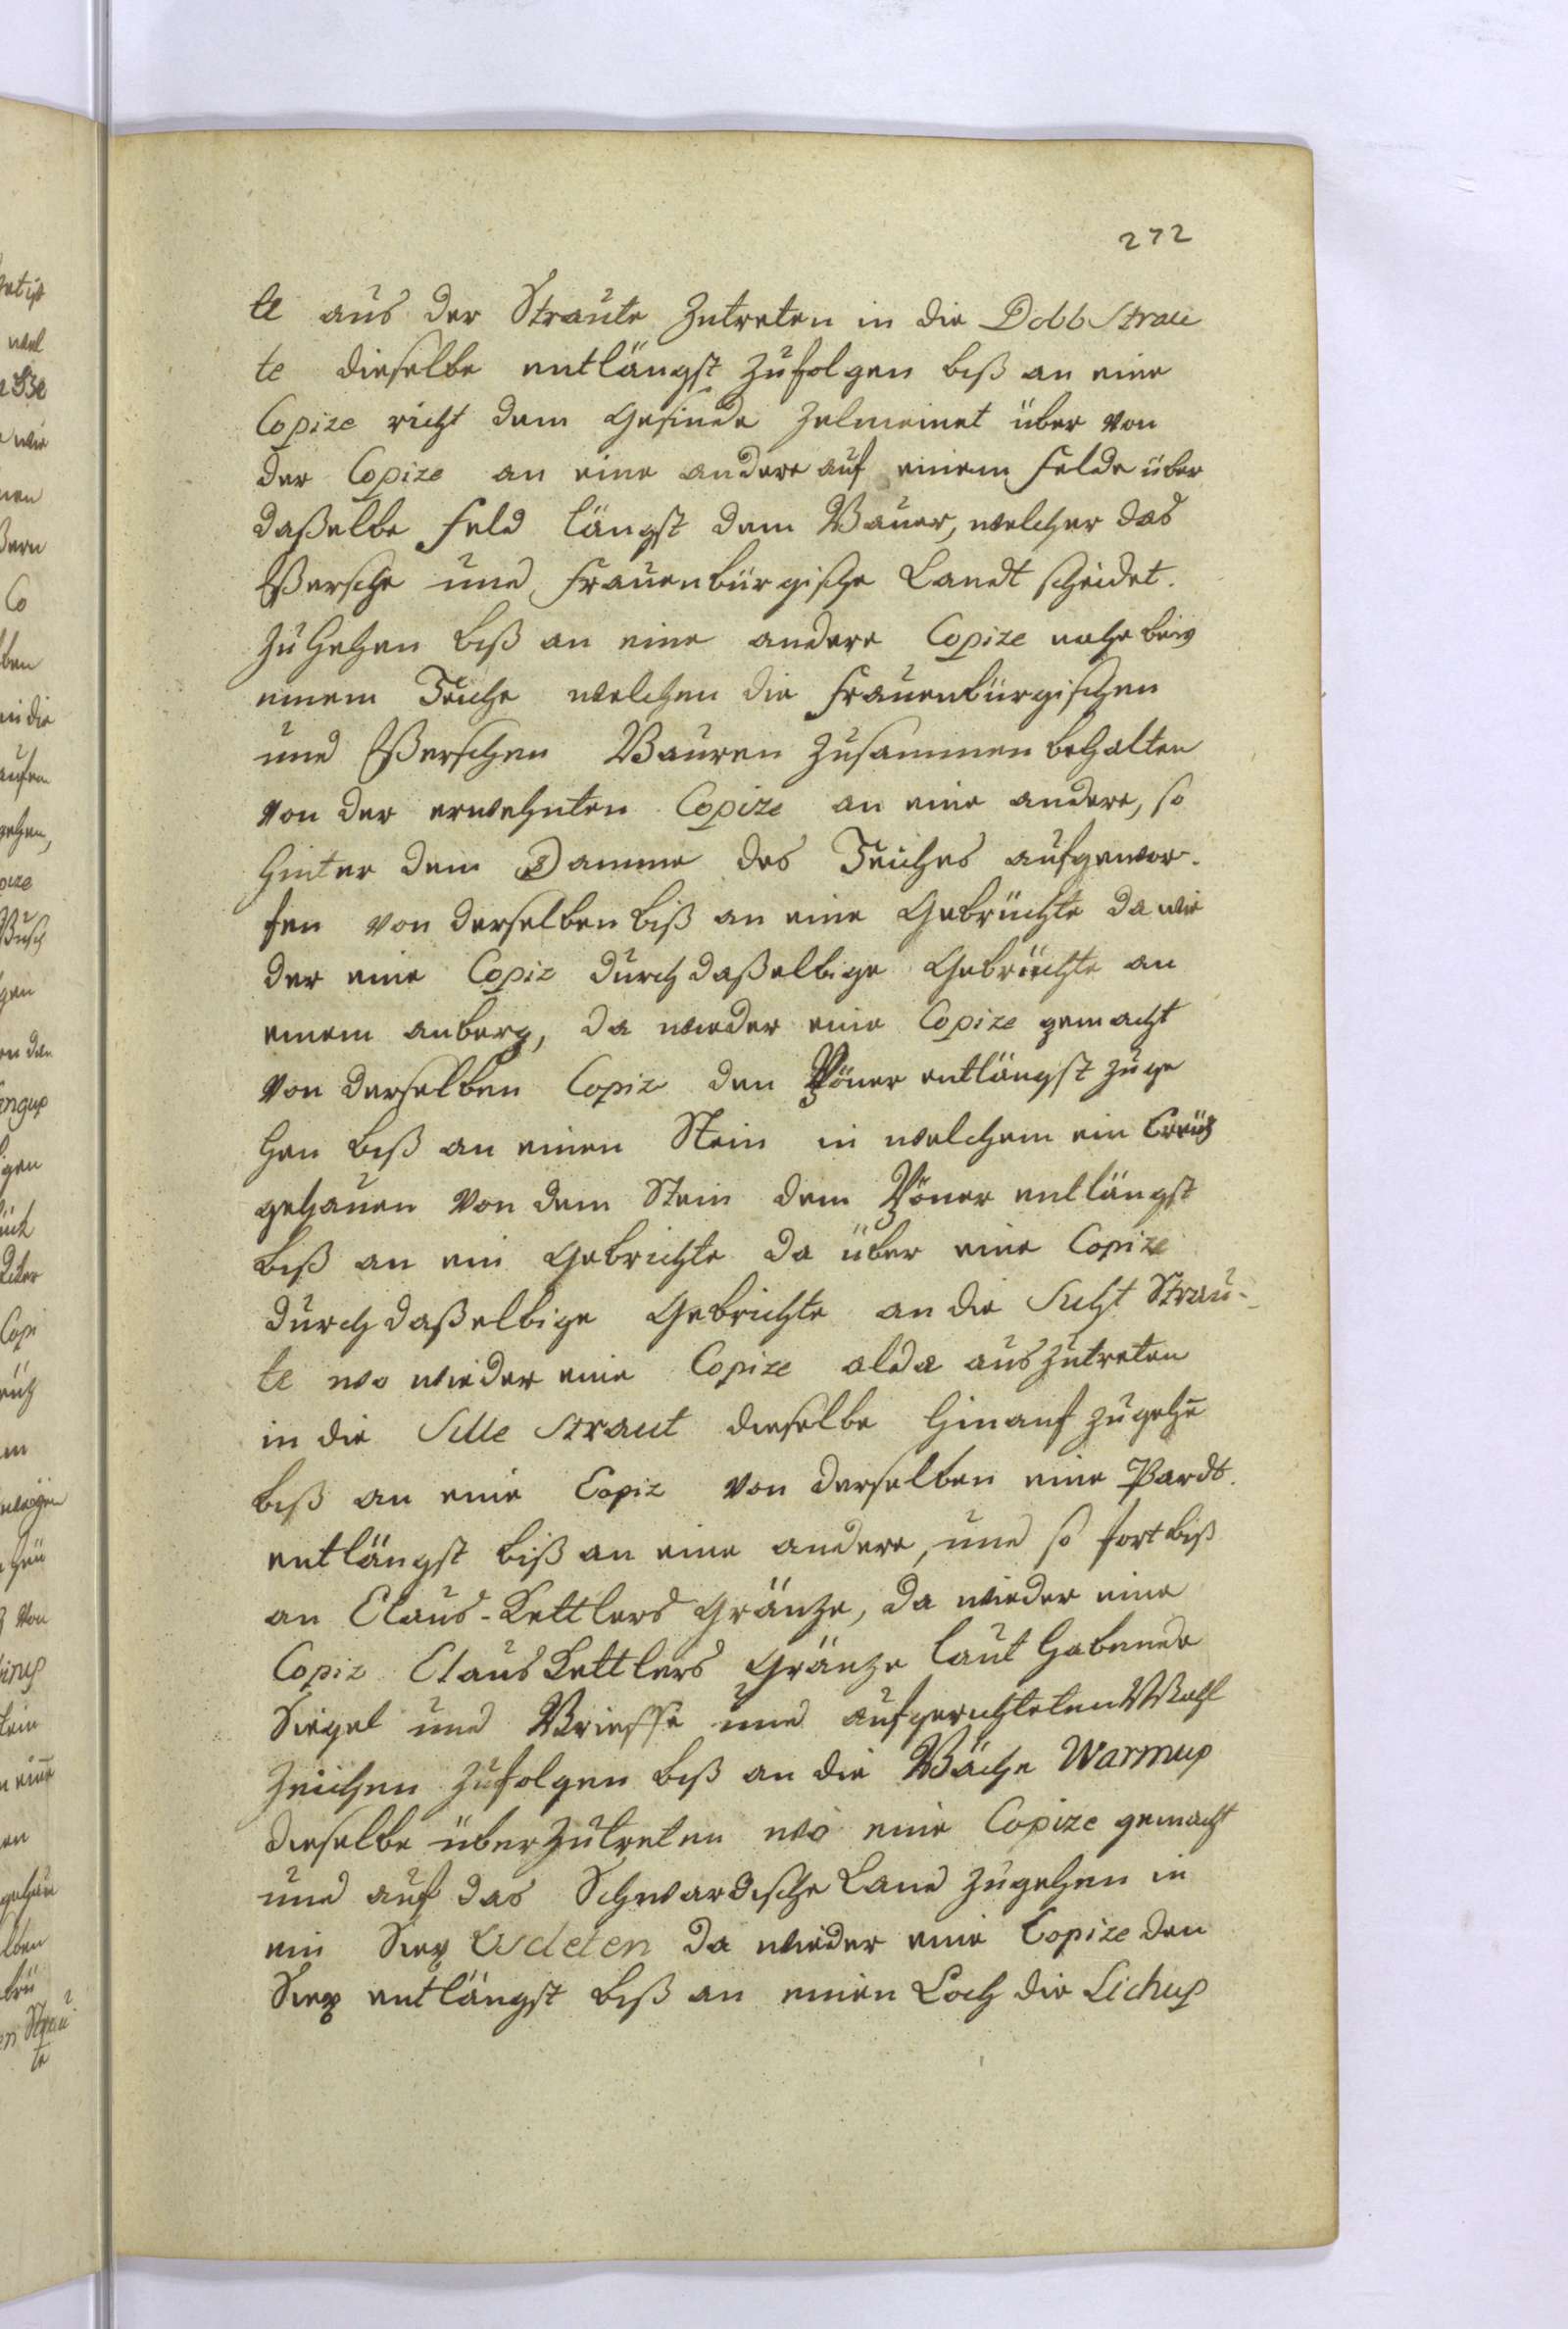 272
te aus der Straute zutreten in die Dobb Strau
te dieselbe entlängst zufolgen biß an eine
Copize richt dem Gesinde Zelmeinet über von
der Copize an eine andere auf einem Felde über
daßelbe Feld längst dem Bauer, welcher das
Eßersche und Frauenbürgische Landt scheidet.
zu gehen biß an eine andere Copize nahe bein
einem Teiche welchen die Frauenbürgischen
und Eßerschen Bauren zusammen behalten
von der erwehnten Copize an eine andere, so
hinter dem Damme des Teiches aufgewor-
fen von derselben biß an eine Gebrüchte da wie
der eine Copiz durch daßelbige Gebrüchte an
einem anberg, da wieder eine Copize gemacht
von derselben Copiz den Pöner entlängst zu ge
hen biß an einen Stein in welchem ein Creütz
gehauen von dem Stein dem Pöner entlängst
biß an ein Gebrichte da über eine Copize
durch daßelbige Gebrichte an die Sucht Strau-
te wo wieder eine Copize alda auszutreten
in die Sille Straut dieselbe hinauf zugehen
biß an eine Copiz von derselben eine Pardt
entlängst biß an eine andere, und so fort biß
an Claus-Kettlers Gränze, da wieder eine
Copiz Claus Kettlers Gränze laut habende
Siegel und Brieffe und aufgerichteten Mahl
zeichen zufolgen biß an die Bäche Warmup
dieselbe überzutreten wo eine Copize gemacht
und auf das Schwardische Land zugehen in
ein Siep Usdeten da wieder eine Copize den
Siep entlängst biß an einen Loch die Lichup